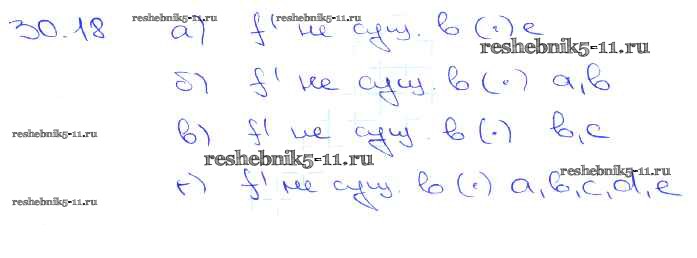 reshebnik5-11.ru reshebnik5-11.ru
30.18 а) f' не сущ. в (·) e
reshebnik5-11.ru
б) f' не сущ. в (·) a, b
reshebnik5-11.ru в) f' не сущ. в (·) b, c
reshebnik5-11.ru
reshebnik5-11.ru
г) f' не сущ. в (·) a, b, c, d, e
reshebnik5-11.ru